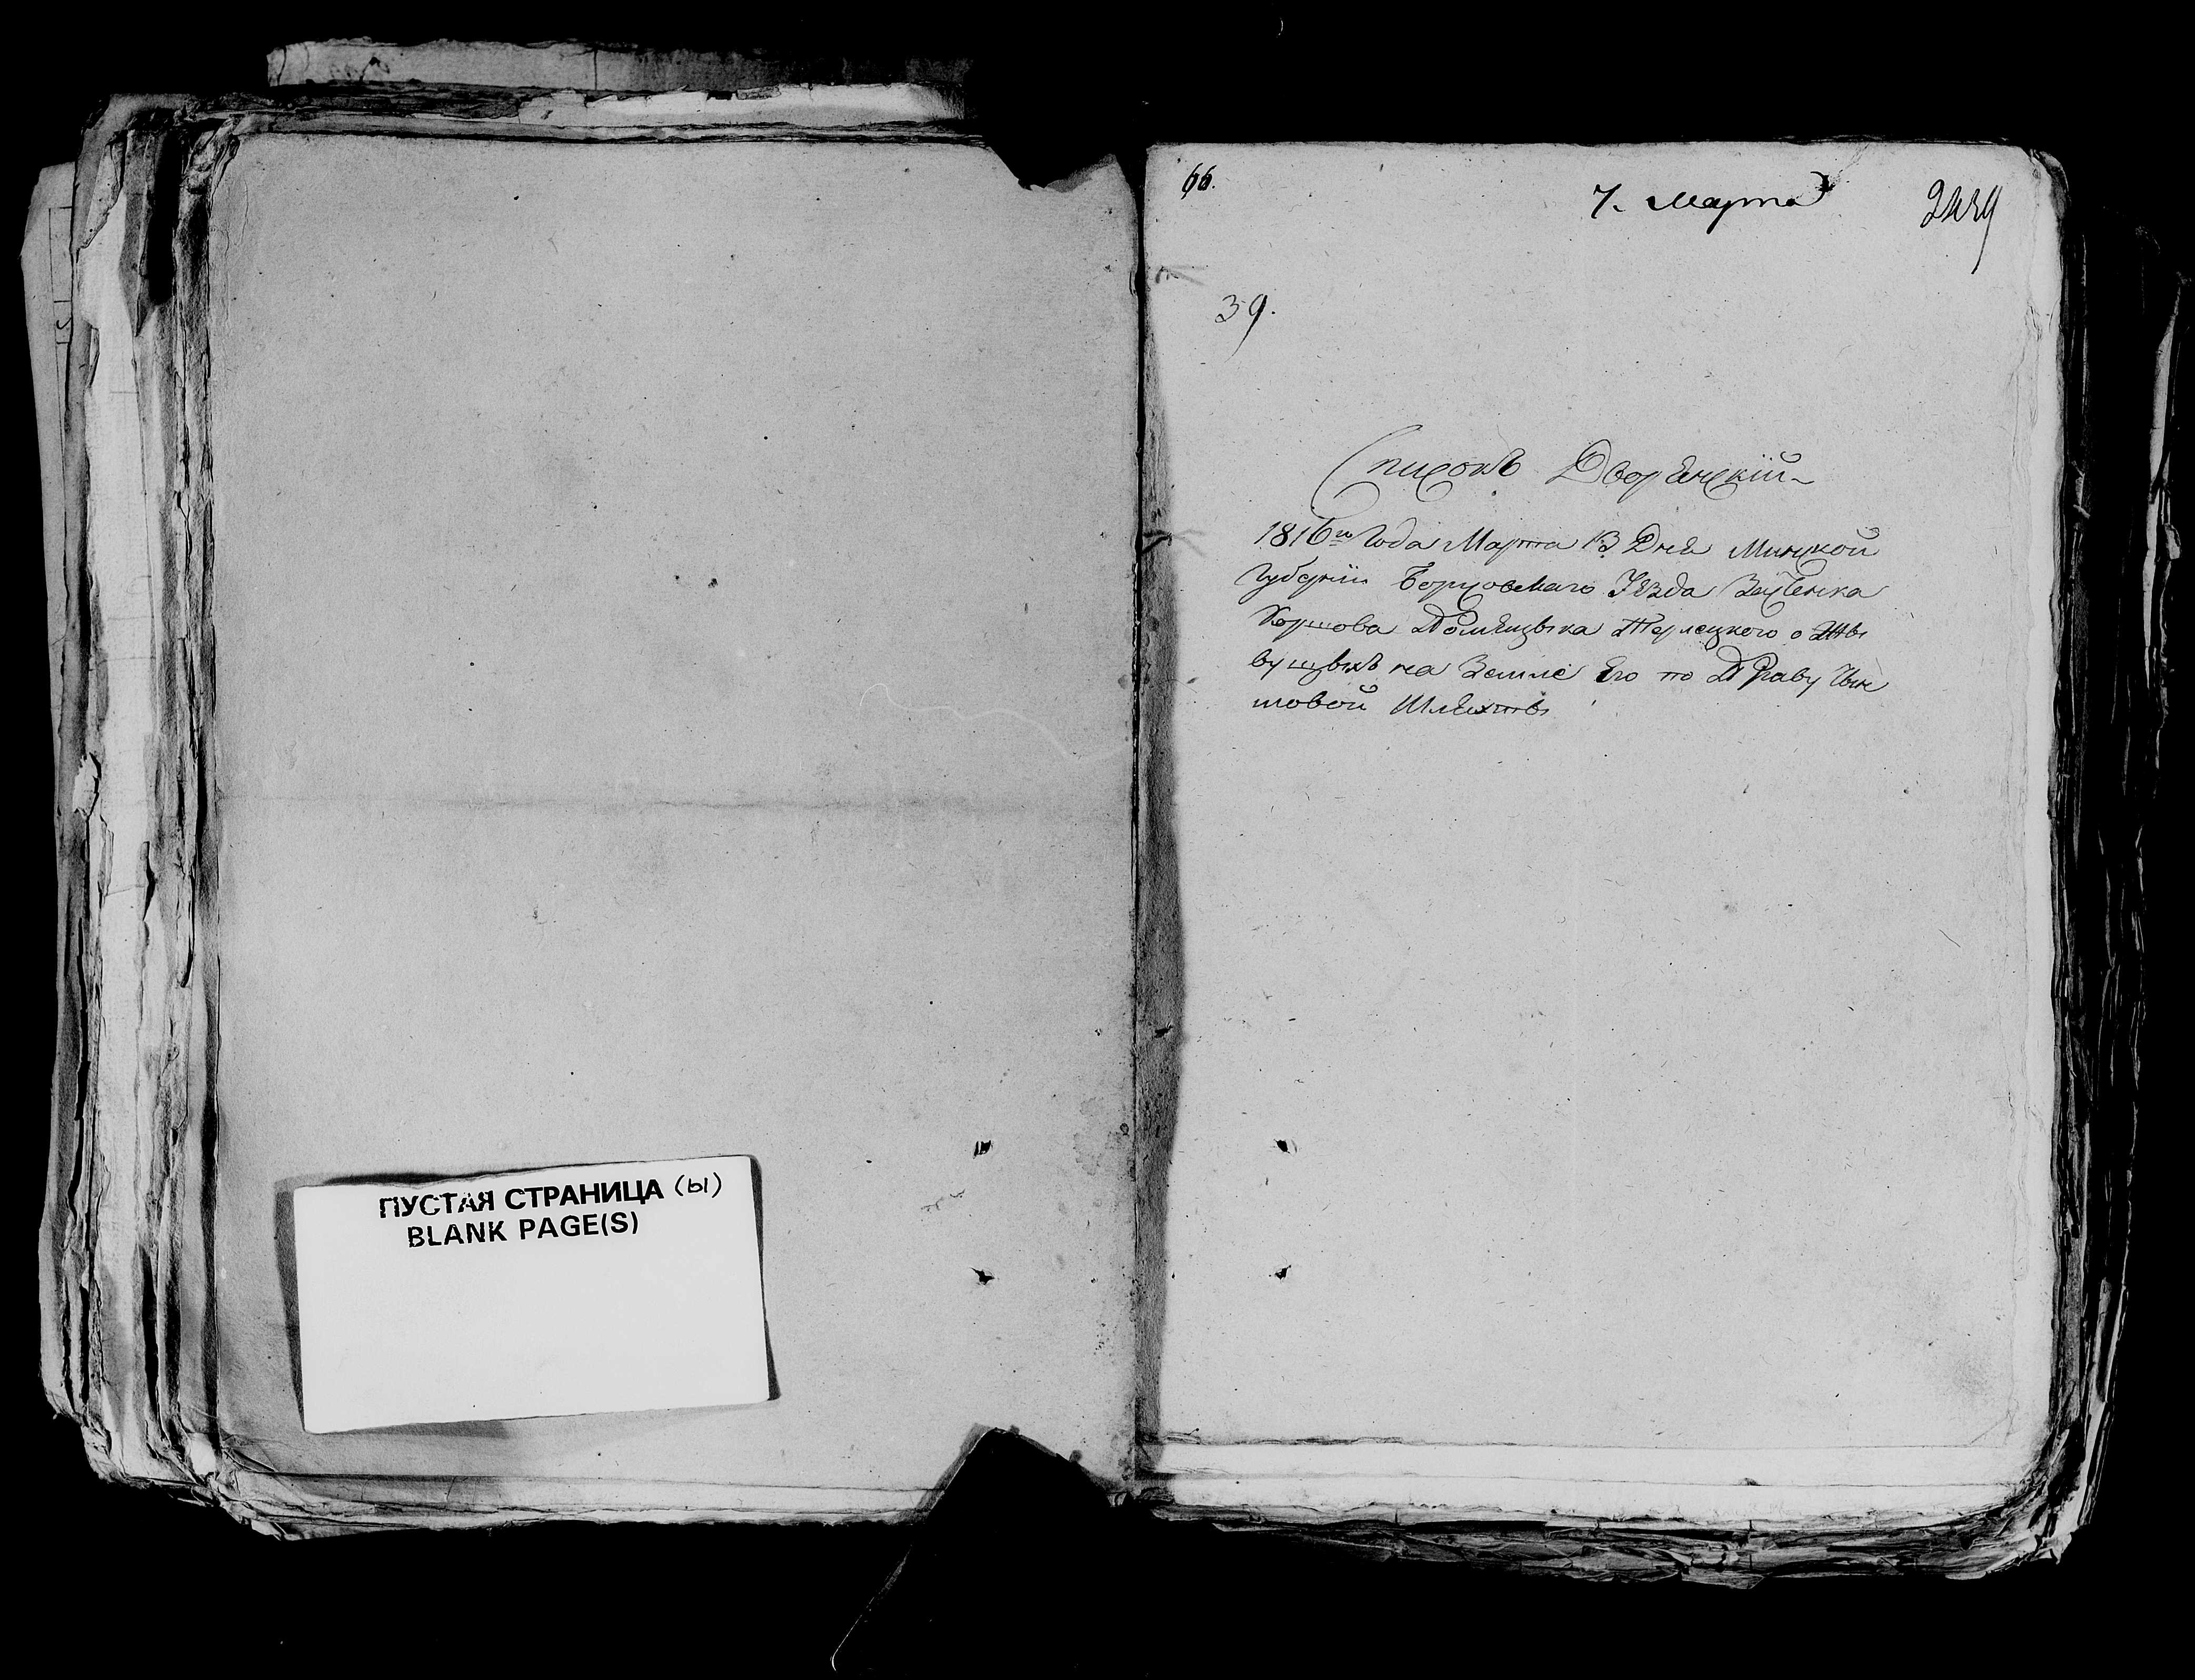 ПУСТАЯ СТРАНИЦА (ы)
BLANK PAGE(S)
66.
7. Марта
39.
Списокъ Дворянскій
1816го Года Марта 13 Дня Минской
Губерніи Борисовскаго Уѣзда
Помѣщика о Жы
вущыхъ на Землѣ Его по Праву Чын
шовой Шляхты